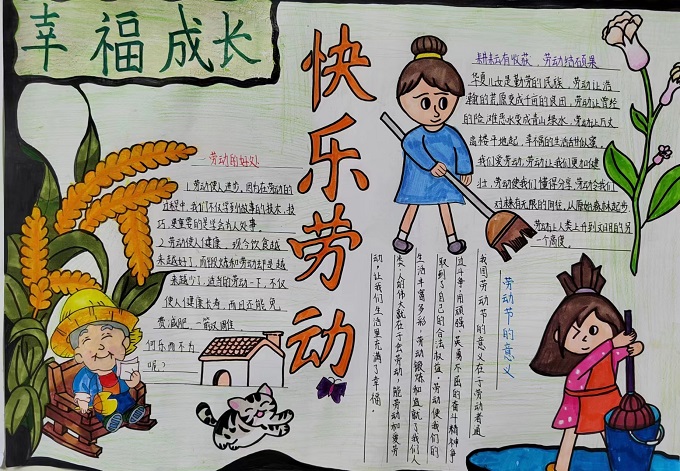 幸福成长
快乐劳动
劳动的好处
1.劳动使人进步,因为在劳动的
过程中,我们不仅学到做事的技术,技
巧,更重要的是学会为人处事。
2.劳动使人健康,现今饮食越
来越好了,而锻炼和劳动却是越
来越少了,适当的劳动一下,不仅
使人健康长寿,而且还能免
费减肥,一箭双雕,
何乐而不为
呢?
耕耘有收获,劳动结硕果
华夏儿女是勤劳的民族,劳动让浩
瀚的荒原变成千亩的良田,劳动让贫脊
的险滩恶水变成青山绿水,劳动让万丈
高楼平地起,幸福的生活甘似蜜
我们爱劳动,劳动让我们更加健
壮,劳动使我们懂得分享,劳动令我们
对未来有无限的向往,从原始森林起步
劳动让人类上升到文明的另
一个高度
劳动节的意义
我国劳动节的意义在于劳动者通
过斗争,用顽强、英勇不屈的奋斗精神争
取到了自己的合法权益,劳动使我们的
生活丰富多彩,劳动锻炼和造就了我们人
类,人的伟大就在于会劳动,能劳动和爱劳
动,让我们生活里充满了幸福。